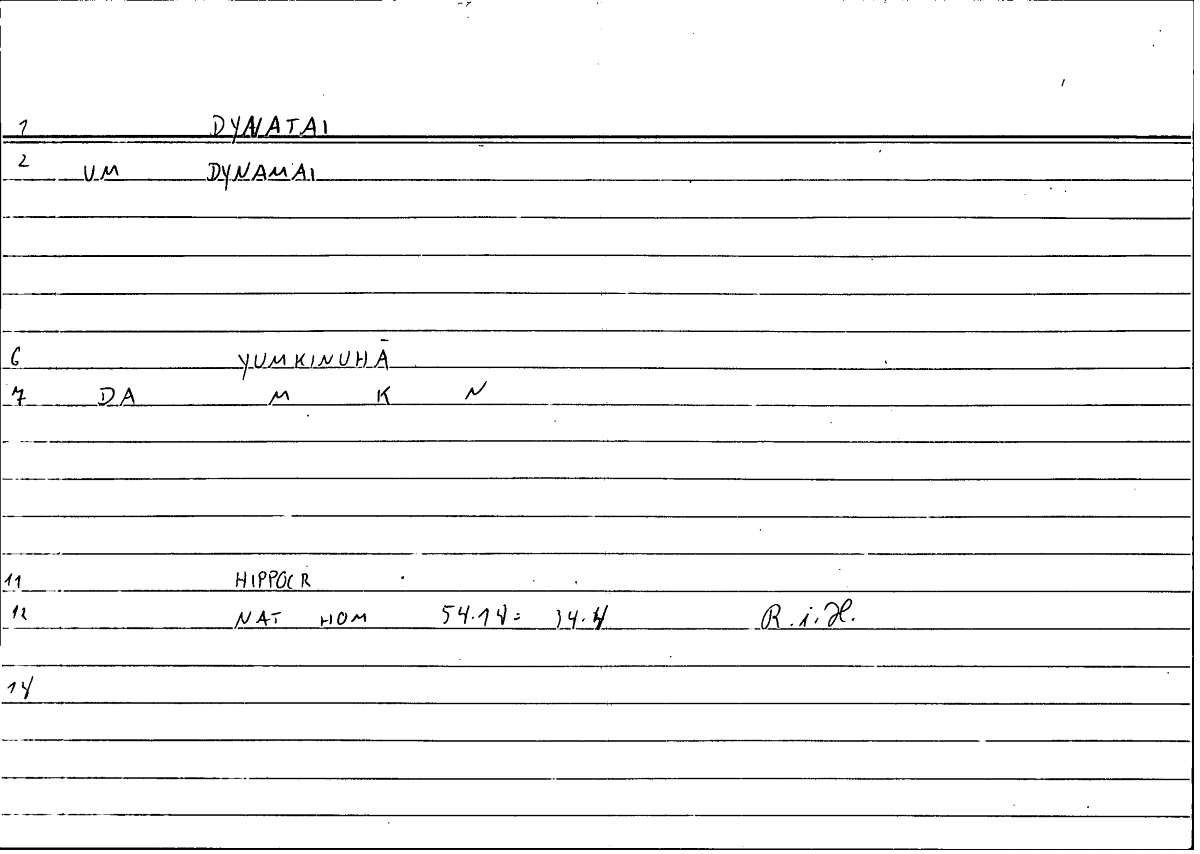 1 DYNATAI
2 UM DYNAMAI
6 YUMKINUHĀ
7 DA M K N
11 HIPPOCR
12 NAT HOM 54.14 = 34.4 R.i.H.
14